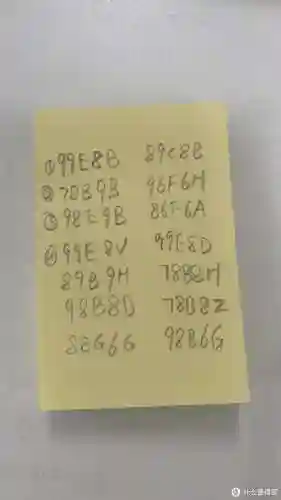 ①99E8B 89C8B
②70B9B 96F6H
③98E9B 86F6A
④99E8V 99E8D
89B9H 78B8H
98B8D 78D8Z
88G6G 98B6G
什么值得买